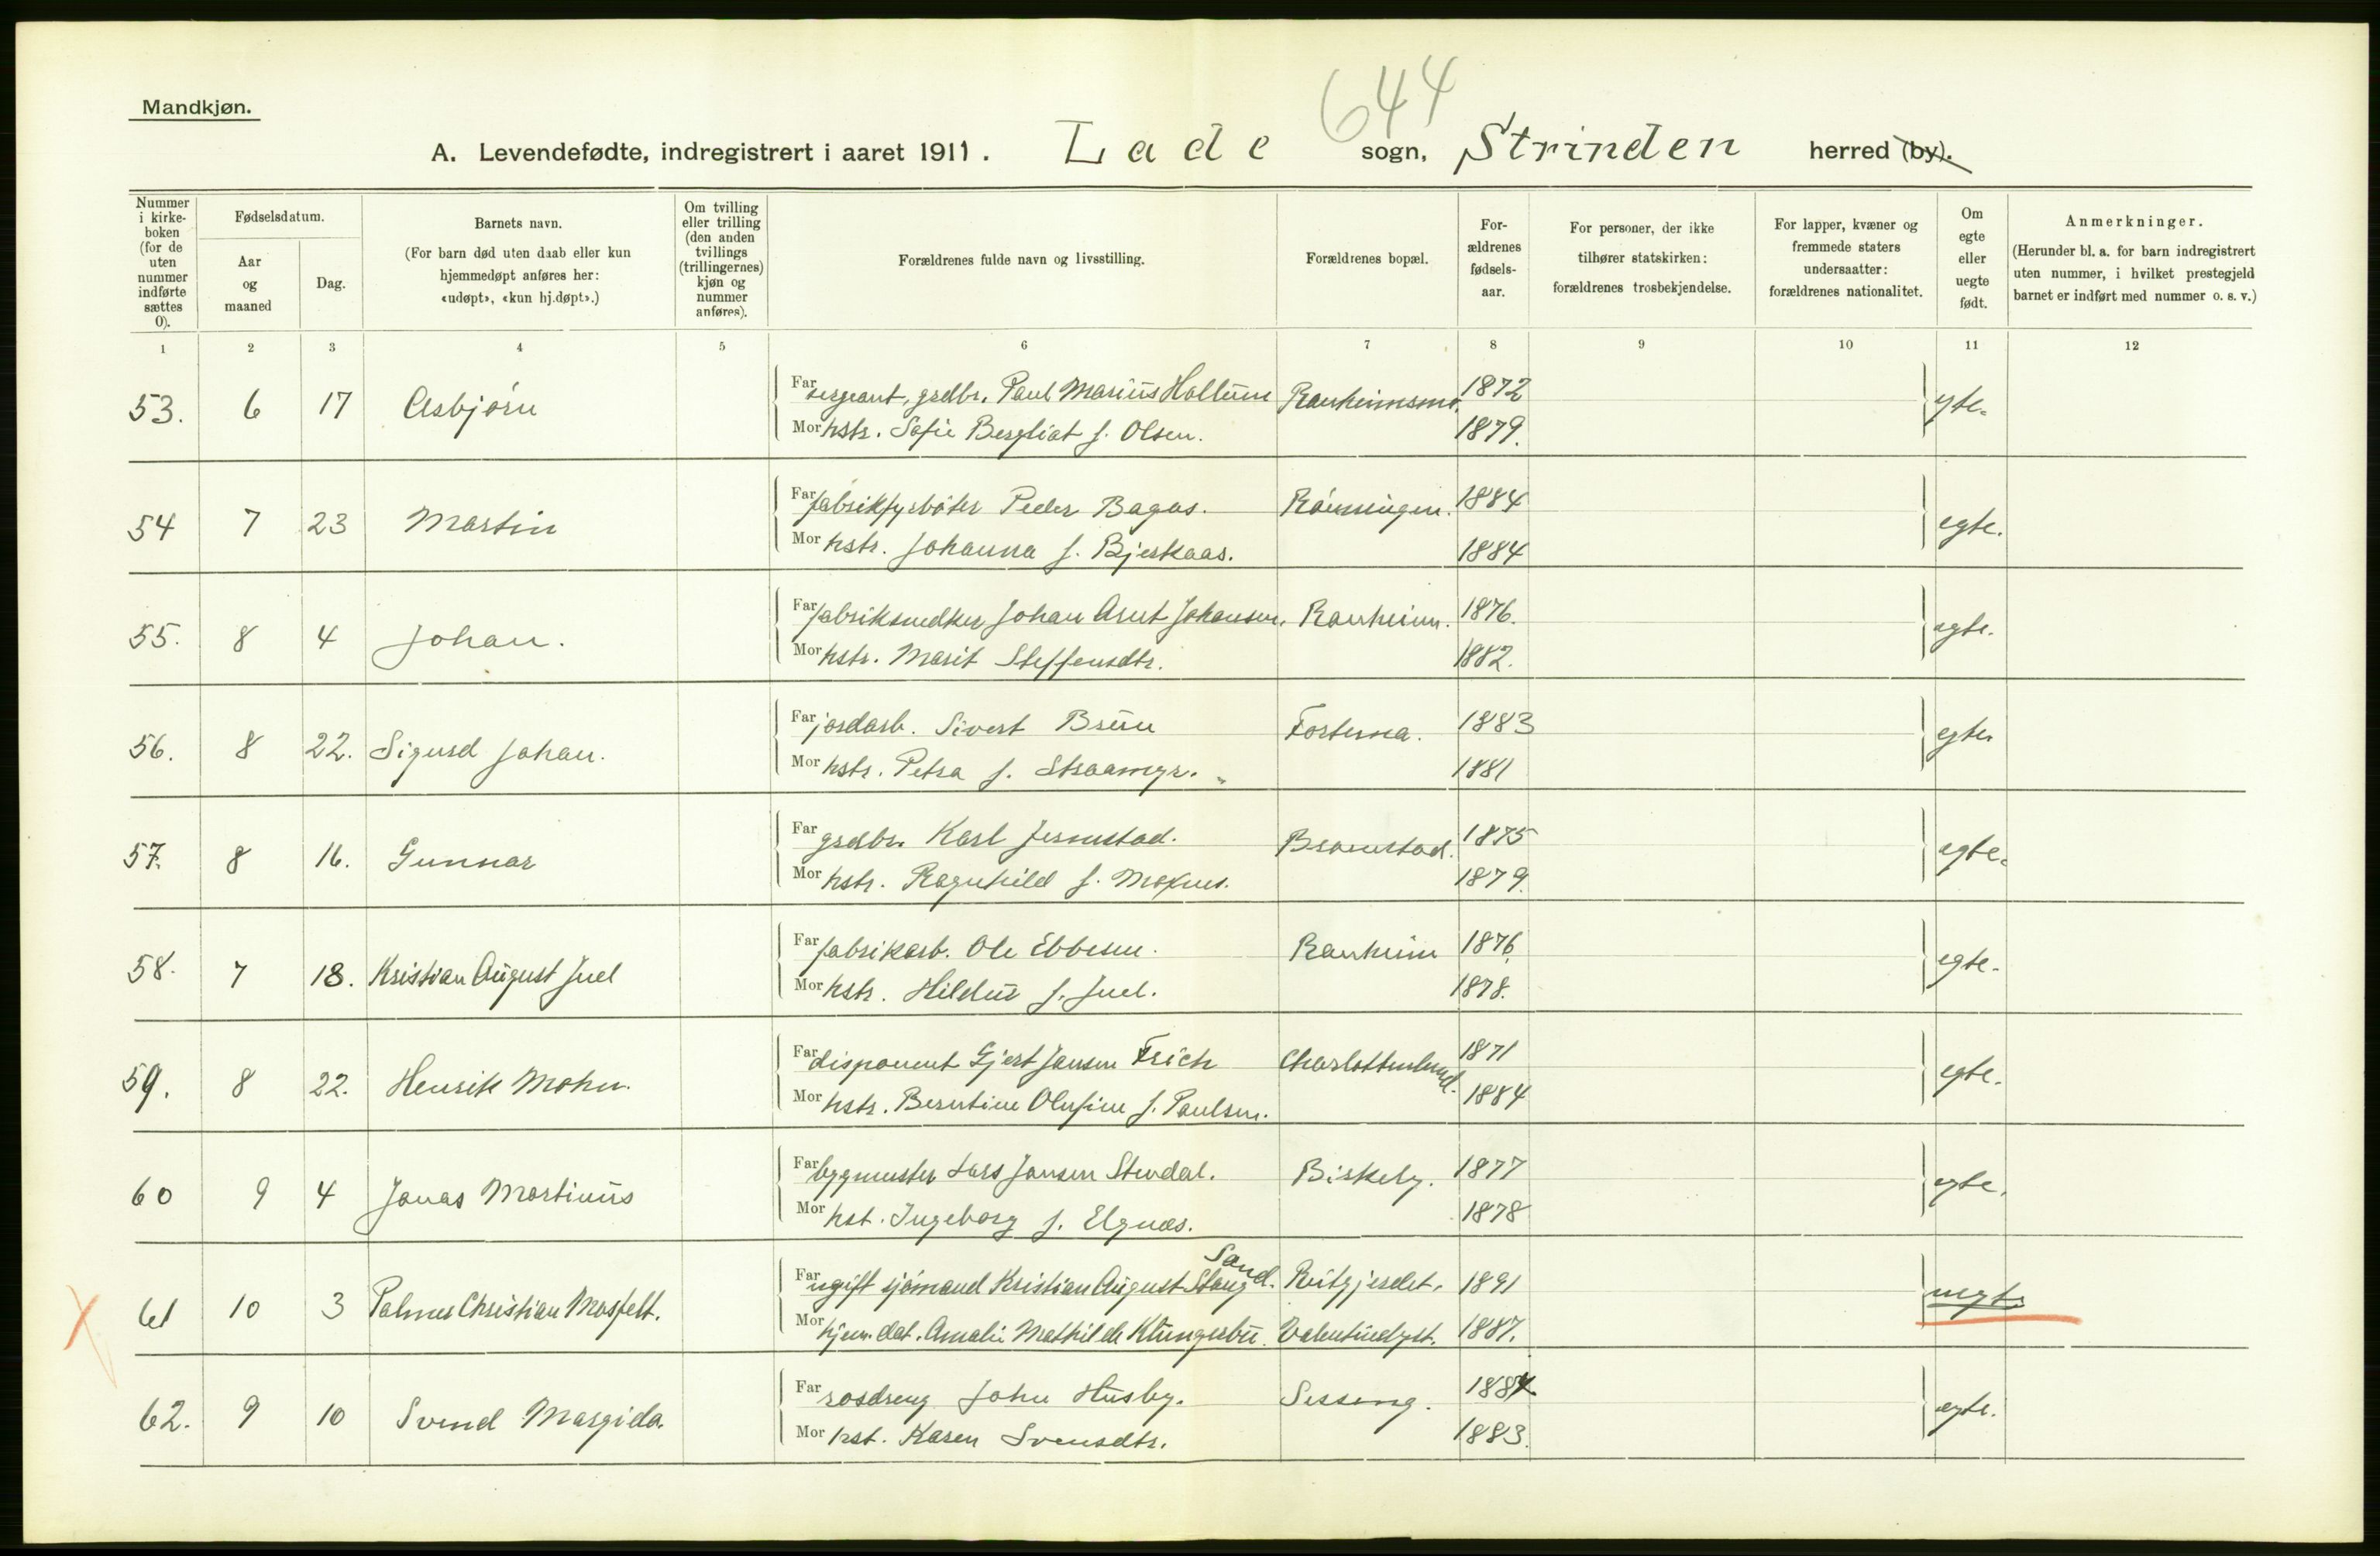 644
Mandkjøn.
A. Levendefødte, indregistrert i aaret 1911. Lade sogn, Strinden herred (by).
Nummer i kirke-boken (for de uten nummer indførte sættes 0).
Fødselsdatum.
Aar og maaned
Dag.
Barnets navn.
(For barn død uten daab eller kun hjemmedøpt anføres her: «udøpt», «kun hj.døpt».)
Om tvilling eller trilling (den anden tvillings (trillingernes) kjøn og nummer anføres).
Forældrenes fulde navn og livsstilling.
Forældrenes bopæl.
For-ældrenes fødsels-aar.
For personer, der ikke tilhører statskirken: forældrenes trosbekjendelse.
For lapper, kvæner og fremmede staters undersaatter: forældrenes nationalitet.
Om egte eller uegte født.
Anmerkninger.
(Herunder bl. a. for barn indregistrert uten nummer, i hvilket prestegjeld barnet er indført med nummer o. s. v.)
1 2 3 4 5 6 7 8 9 10 11 12
53. 6 17 Asbjørn Far sergeant, grdbr. Paul Marius Hallum Ranheimsmo. 1872 egte.
Mor hstr. Sofie Bergliot f. Olsen. 1879.
54 7 23 Martin Far fabrikfyrbøter Peder Bagaas. Rønningen. 1884 egte.
Mor hstr. Johanna f. Bjerkaas. 1884
55. 8 4 Johan. Far fabriksnedker Johan Arnt Johansen. Ranheim. 1876. egte.
Mor hstr. Marit Steffensdtr. 1882.
56. 8 22. Sigurd Johan. Far jordarb. Sivert Bruu Forterna. 1883 egte.
Mor hstr. Petra f. 1881
57. 8 16. Gunnar Far grdbr. Karl Jernstad. 1875 egte.
Mor hstr. Ragnhild f. 1879.
58. 7 18. Kristian August Juel Far fabrikarb. Ole Ebbesen. Ranheim 1876. egte.
Mor hstr. Hildur f. Juel. 1878.
59. 8 22. Henrik Mohn. Far disponent Gjert Jansen Frich Charlottenlund. 1871 egte.
Mor hstr. Berntine Olufine f. Paulsen. 1884
60 9 4 Jonas Martinus Far bygmester Lars Jansen Stendal. Birkely. 1877 egte.
Mor hst. Ingeborg f. Elgnæs. 1878
Sand.
61 10 3 Palmer Christian Mosfelt. Far ugift sjømand Kristian August Stang Rutgjerdet. 1891 uegte
Mor hjem. dat. Amalie Mathilde Klungerbu. Valentinelyst. 1887.
62. 9 10 Svend Margido. Far rosdreng John Husby. 1884 egte.
Mor hst. Karen Svensdtr. 1883.